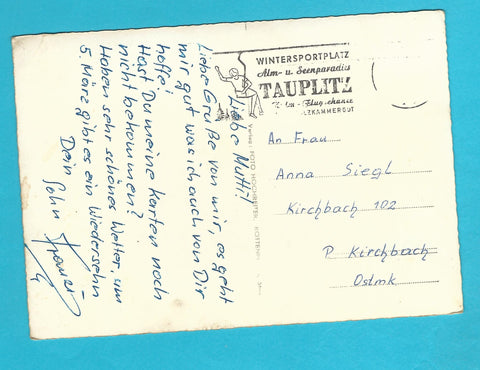 Liebe Mutti!
Liebe Grüße von mir, es geht
mir gut was ich auch von Dir
hoffe!
Hast Du meine Karten noch
nicht bekommen?
Haben sehr schönes Wetter, um
5. März gibt es ein Wiedersehn
Dein
Sohn
WINTERSPORTPLATZ
Alm- u. Seenparadies
TAUPLITZ
Flugschanze
SALZKAMMERGUT
FOTO HOCHREITER,
An Frau
Anna Siegl
Kirchbach 102
P Kirchbach
Ostmk